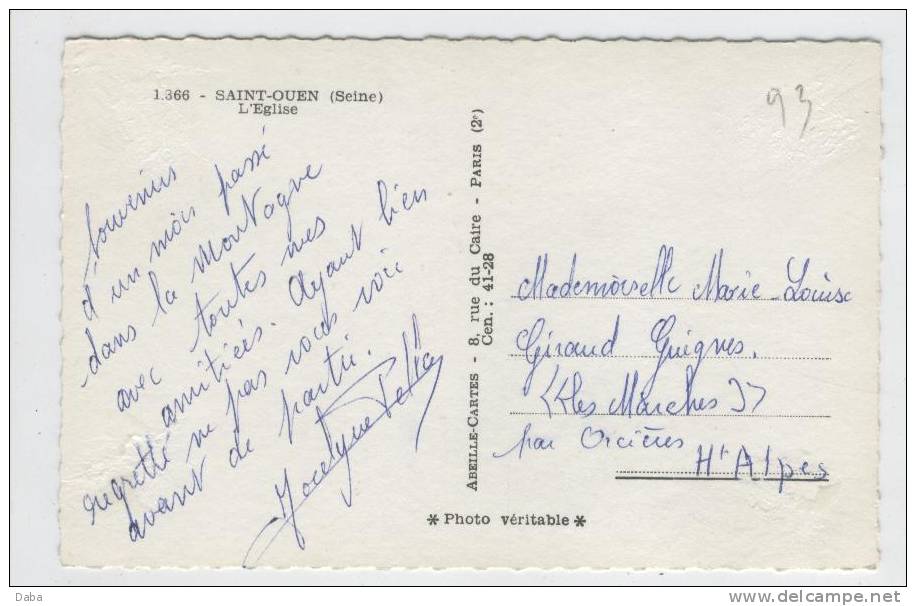 1.366 - SAINT-OUEN (Seine)
L'Eglise
93
Souvenirs
d'un mois passé
dans la montagne
avec toutes mes
amitiées. Ayant bien
regretté ne pas vous voir
avant de partir.
Jocelyne
ABEILLE-CARTES - 8, rue du Caire - PARIS (2e)
Cen. : 41-28
Mademoiselle Marie-Louise
Giraud Guigues.
<<les Marches>>
par Orcières
Htes Alpes
* Photo véritable *
Daba
www.delcampe.net